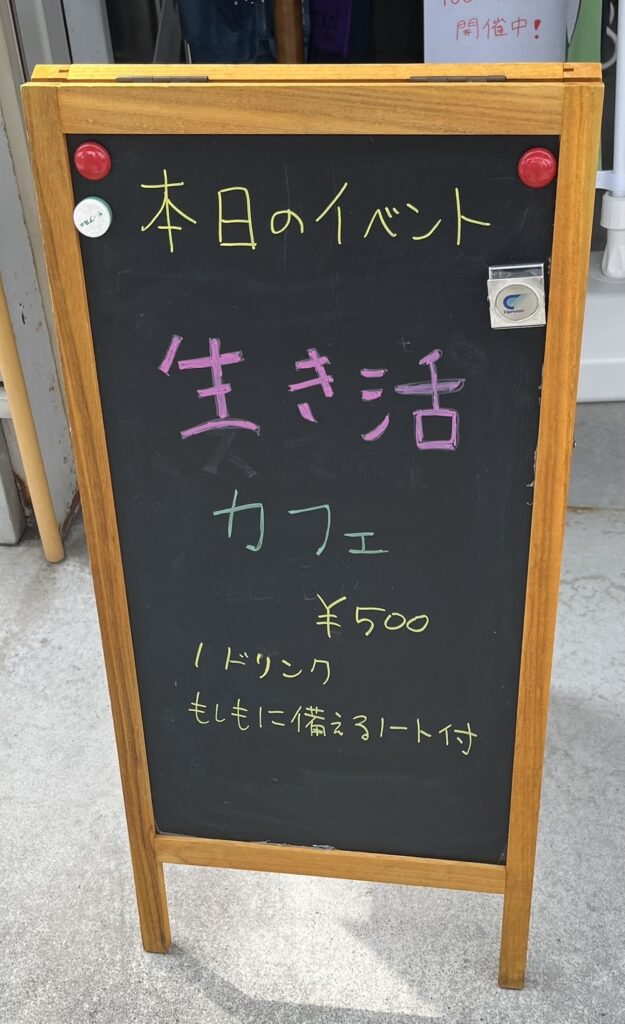 開催中!
本日のイベント
生き活
カフェ
¥500
1ドリンク
もしもに備えるノート付